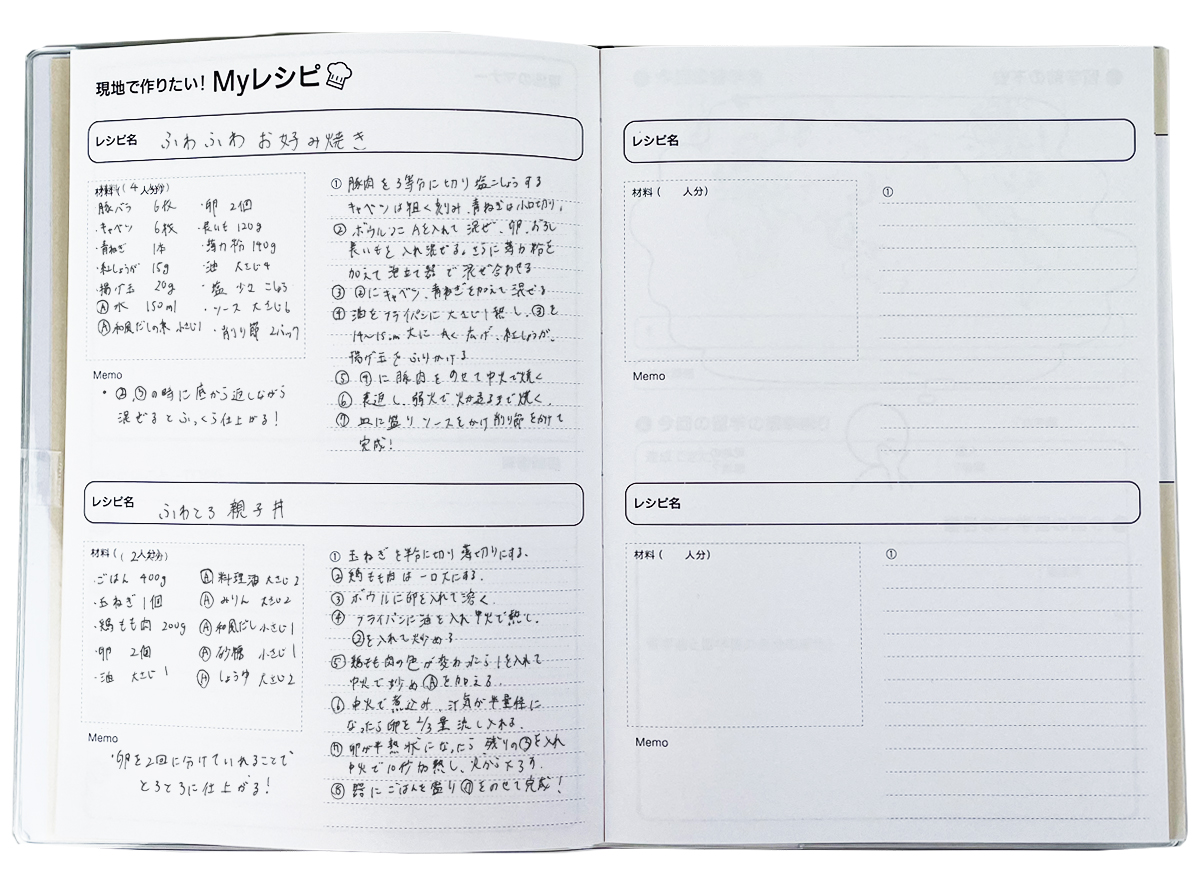 現地で作りたい! Myレシピ
レシピ名 ふわふわ お好み焼き
材料 (4人分)
豚バラ 6枚 ・卵 2個
・キャベツ 6枚 ・長いも 120g
・青ねぎ 1本 ・薄力粉 140g
・紅しょうが 15g ・油 大さじ4
・揚げ玉 20g ・塩 少々 こしょう
Ⓐ水 150ml ・ソース 大さじ6
Ⓐ和風だしの素 小さじ1 ・削り節 2パック
Memo
・②,③の時に底から返しながら
混ぜるとふっくら仕上がる!
① 豚肉を3等分に切り塩こしょうする
キャベツは粗く刻み、青ねぎは小口切り。
② ボウルにAを入れて混ぜ、卵、おろし
長いもと入れ混ぜる。さらに薄力粉を
加えて泡立て器で混ぜ合わせる
③ ②にキャベツ、青ねぎを加えて混ぜる
④ 油をフライパンに大さじ1熱し、③を
14〜15cm大に丸く広げ、紅しょうが、
揚げ玉をふりかける
⑤ ④に豚肉をのせて中火で焼く
⑥ 裏返し、弱火で火が通るまで焼く。
⑦ 皿に盛りソースをかけ削り節をかけて
完成!
レシピ名 ふわとろ 親子丼
材料 (2人分)
・ごはん 400g Ⓐ料理酒 大さじ2
・玉ねぎ 1個 Ⓐみりん 大さじ2
・鶏もも肉 200g Ⓐ和風だし 小さじ1
・卵 2個 Ⓐ砂糖 小さじ1
・油 大さじ1 Ⓐしょうゆ 大さじ2
Memo
・卵を2回に分けていれることで
とろとろに仕上がる!
① 玉ねぎを半分に切り薄切りにする。
② 鶏もも肉は一口大にする。
③ ボウルに卵を入れて溶く。
④ フライパンに油を入れ中火で熱して、
②を入れて炒める
⑤ 鶏もも肉の色が変わったら1を入れて
中火で炒めⒶを加える。
⑥ 中火で煮込み、汁気が半量程に
なったら卵を2/3量流し入れる。
⑦ 卵が半熟状になったら残りの③を入れ
中火で10秒加熱し、火から下ろす。
⑧ 器にごはんを盛り⑦をのせて完成!
レシピ名
材料 ( 人分)
①
Memo
レシピ名
材料 ( 人分)
①
Memo